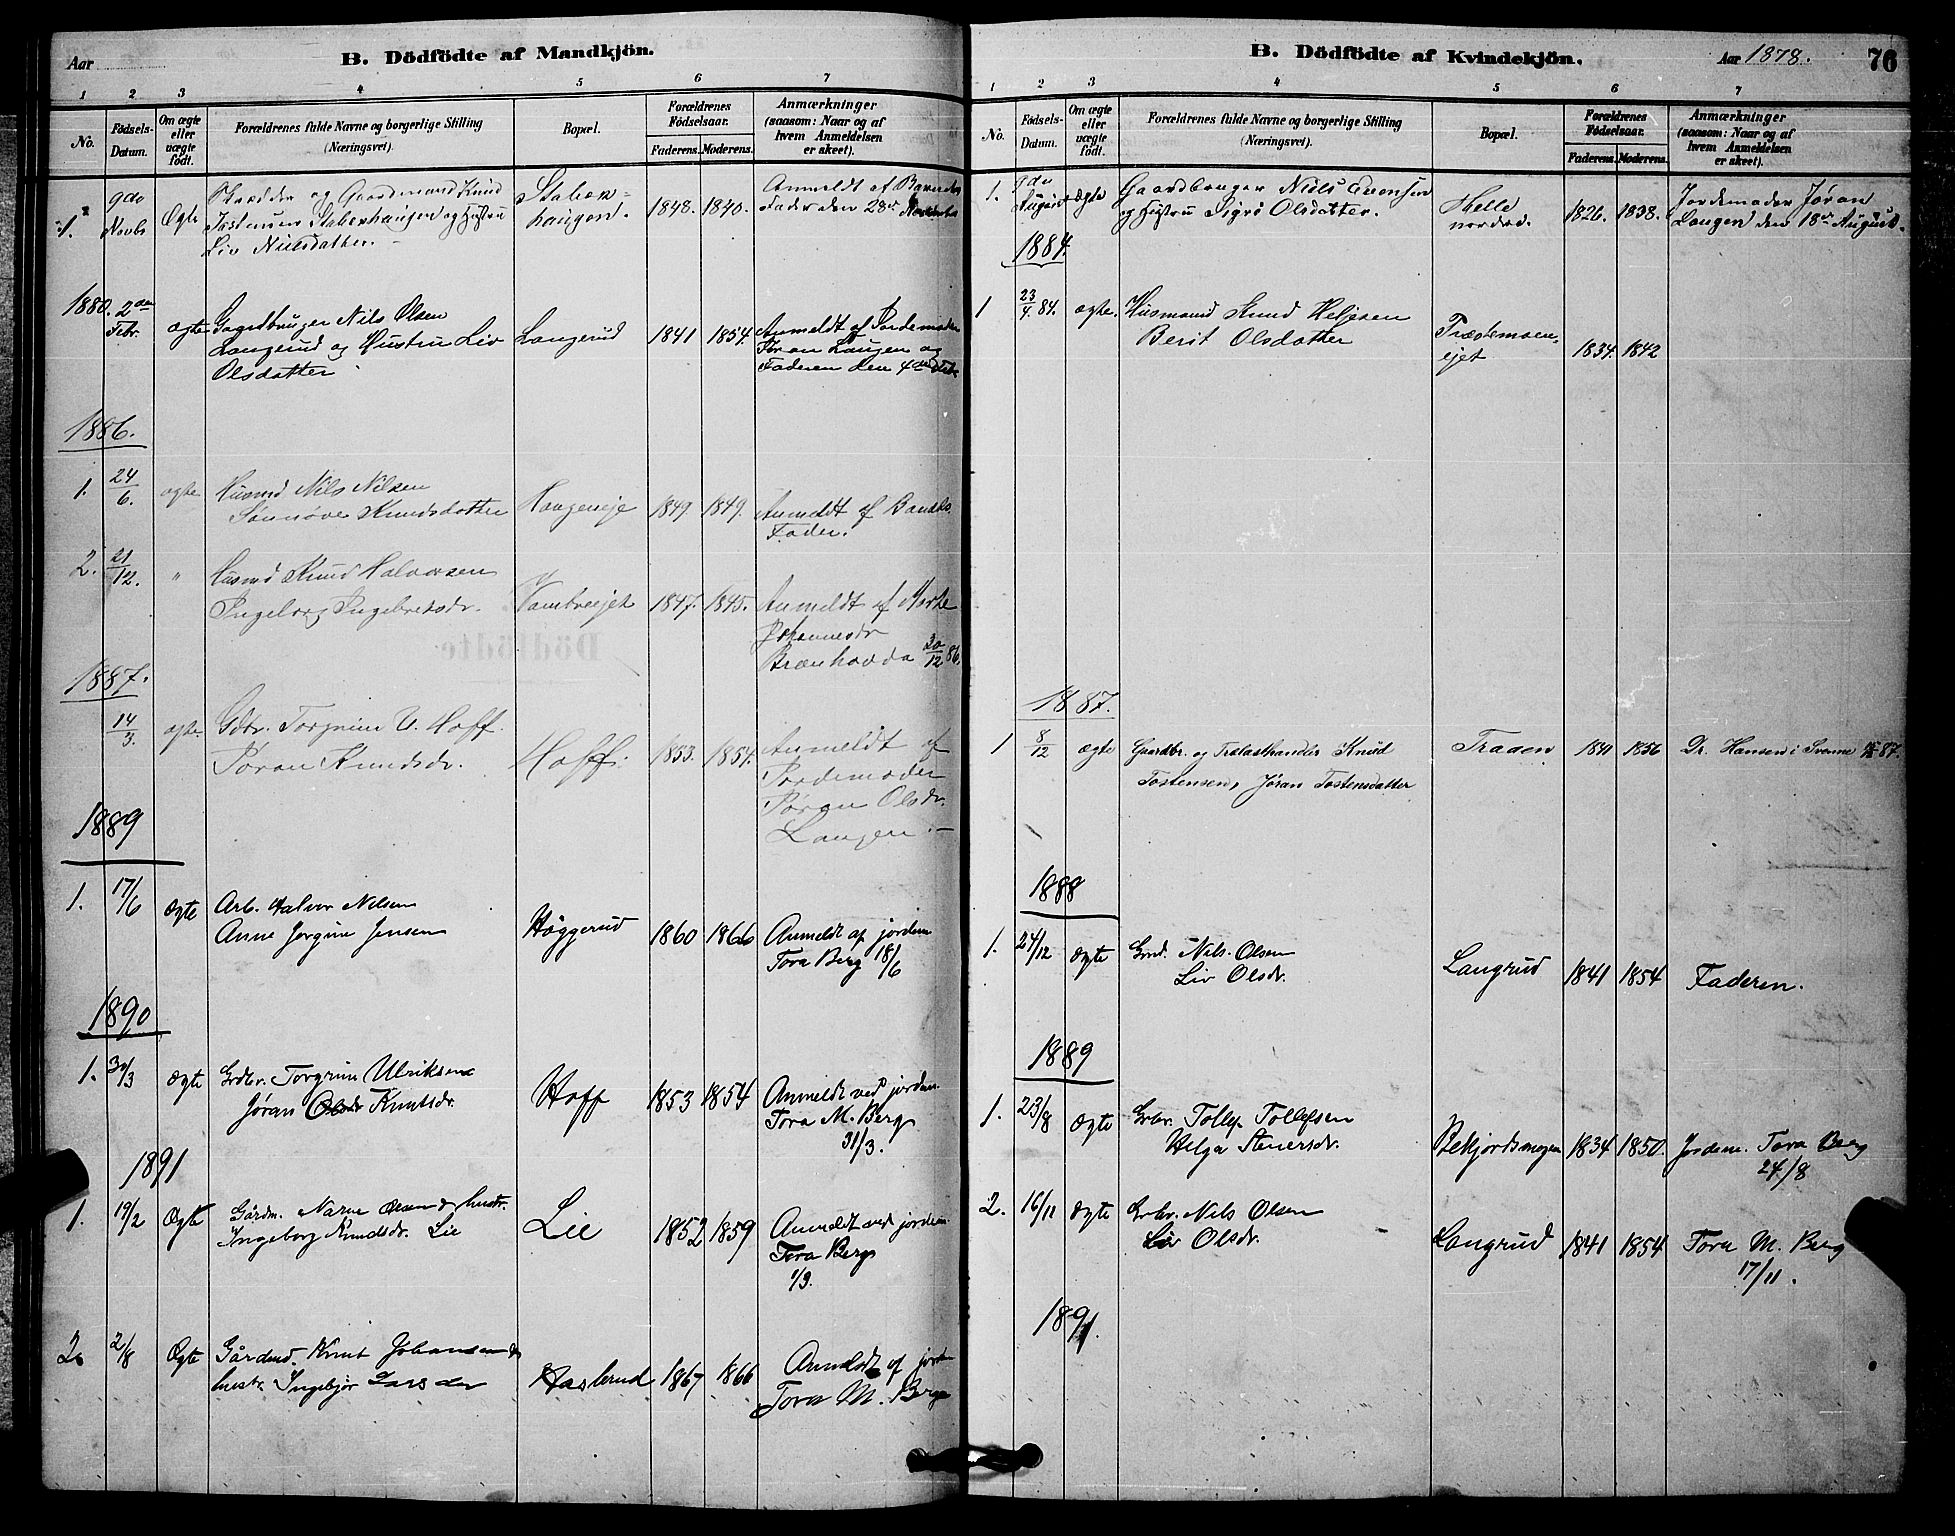 Aar
B. Dödfödte af Mandkjön.
1 2 3 4 5 6 7
No. Födsels-Datum. Om ægte eller uægte födt. Forældrenes fulde Navne og borgerlige Stilling (Næringsvei). Bopæl. Forældrenes Födselsaar. Faderens. Moderens. Anmærkninger (saasom: Naar og af hvem Anmeldelsen er skeet).
1. 9de Ægte og Gaardmand Knud Staben- 1848. 1840. Anmeldt af Barnets
Novbr Tostensen Stabenhaugen og Hustru haugen. Fader den 28de Novbr
Liv Nielsdatter.
1880. 2den Febr. ægte Gaardbruger Nils Olsen Langerud 1841 1854. Anmeldt af Jordemoder
Langerud og Hustru Liv Jøran Laugen og
Olsdatter Faderen den 4de Feb.
1886.
1. 24/6. ægte Husmd Nils Nilsen Haugeneje 1849. 1849. Anmeldt af Barnets
Sønnøve Knudsdatter Fader.
2. 21/12. " Husmd Knud Halvorsen 1847. 1845. Anmeldt af Marte
Ingeborg Ingebretsdr. Johannesdr
Brænhovda 30/12 86.
1887.
14/3. ægte. Gdbr. Torgrim U. Hoff. Hoff. 1853. 1854. Anmeldt af
Jøran Knudsdr. Jordemoder
Jøran Olsdr.
Laugen.-
1889
1. 17/6 Ægte Arb. Halvor Nilsen Høggerud 1860 1866 Anmeldt af jordem.
Anne Jørgine Jensen Tora Berg 18/6
1890
1. 30/3 Ægte Grdbr. Torgrim Ulriksen Hoff 1853 1854 Anmeldt ved jordem.
Jøran Olsdr Knutsdr. Tora M. Berg
31/3.
1891
1. 19/2 Ægte Gårdm. Narve Olsen & hustr. Lie 1852 1859 Anmeldt ved jordem.
Ingeborg Knudsdr. Lie Tora Berg
1/3.
2. 2/8 Ægte Gårdmd. Knut Johansen & Haslerud 1867 1866 Anmeldt af jordm
hustr. Ingebjør Larsdr Tora M. Berg
B. Dödfödte af Kvindekjön.
Aar 1878. 76
1 2 3 4 5 6 7
No. Födsels-Datum. Om ægte eller uægte födt. Forældrenes fulde Navne og borgerlige Stilling (Næringsvei). Bopæl. Forældrenes Födselsaar. Faderens. Moderens. Anmærkninger (saasom: Naar og af hvem Anmeldelsen er skeet).
1. 9de August ægte Gaardbruger Niels Helle 1826. 1838. Jordemoder Jøran
og Hustru Sigri Olsdatter. nordre. Laugen den 18de August.
1884.
1 23/4 84. ægte. Husmand Knud Heljesen 1834. 1842
Berit Olsdatter ejet
1887.
1 8/12 ægte Gaardbr. og Trælasthandler Knud Traaen 1841 1856 Dr. Hansen i Svenne 87.
Tostensen, Jøran Tostensdatter
1888
1. 24/12 Ægte Grmd. Nils Olsen Langrud 1841 1854 Faderen.
Liv Olsdr.
1889
1. 23/8 Ægte Grbr. Tollef Tollefsen Bekjordsmogen 1834 1850. Jordem. Tora Berg
Helga Stenersdr. 24/8
2. 16/11 Ægte Grbr. Nils Olsen Langrud 1841 1854 Tora M. Berg
Liv Olsdr. 17/11.
1891.